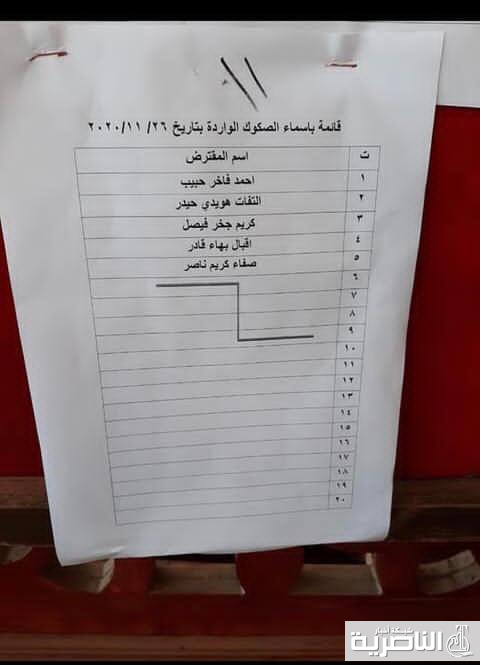 ١١
قائمة باسماء الصكوك الواردة بتاريخ ٢٦/ ١١/ ٢٠٢٠
ت اسم المقترض
١ احمد فاخر حبيب
٢ التفات هويدي حيدر
٣ كريم جخر فيصل
٤ اقبال بهاء قادر
٥ صفاء كريم ناصر
٦
٧
٨
٩
١٠
١١
١٢
١٣
١٤
١٥
١٦
١٧
١٨
١٩
٢٠
شبكة اخبار
الناصرية